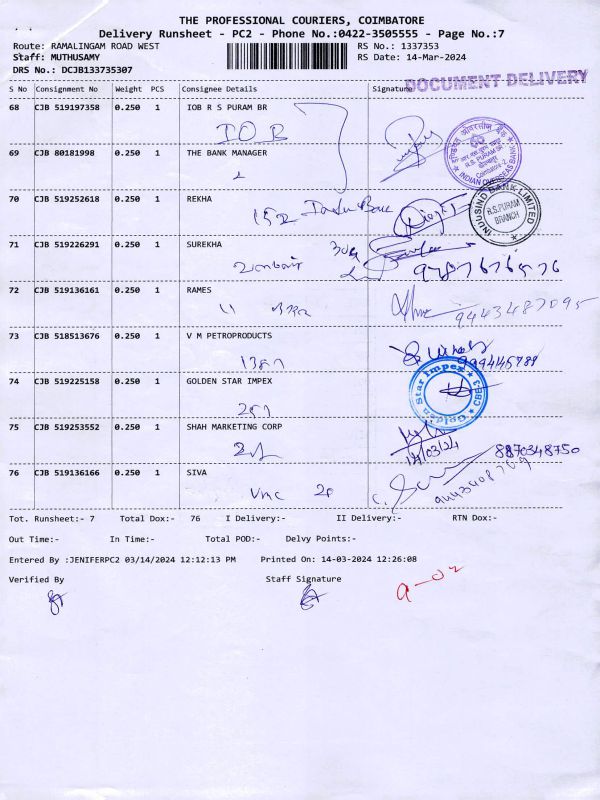 THE PROFESSIONAL COURIERS, COIMBATORE
Delivery Runsheet - PC2 - Phone No.:0422-3505555 - Page No.:7
Route: RAMALINGAM ROAD WEST
RS No.: 1337353
Staff: MUTHUSAMY
RS Date: 14-Mar-2024
DRS No.: DCJB133735307
DOCUMENT DELIVERY
S No Consignment No Weight PCS Consignee Details Signature
68 CJB 519197358 0.250 1 IOB R S PURAM BR
IOB
69 CJB 80181998 0.250 1 THE BANK MANAGER
R.S. PURAM BR
Coimbatore-2
INDIAN OVERSEAS BANK
70 CJB 519252618 0.250 1 REKHA
INDUSIND BANK LIMITED
R.S.PURAM
BRANCH
71 CJB 519226291 0.250 1 SUREKHA
72 CJB 519136161 0.250 1 RAMES
9443487095
73 CJB 518513676 0.250 1 V M PETROPRODUCTS
74 CJB 519225158 0.250 1 GOLDEN STAR IMPEX
Golden Star Impex
75 CJB 519253552 0.250 1 SHAH MARKETING CORP
14/03/24
8870348750
76 CJB 519136166 0.250 1 SIVA
Tot. Runsheet:- 7 Total Dox:- 76 I Delivery:- II Delivery:- RTN Dox:-
Out Time:- In Time:- Total POD:- Delvy Points:-
Entered By :JENIFERPC2 03/14/2024 12:12:13 PM Printed On: 14-03-2024 12:26:08
Verified By Staff Signature
9-02